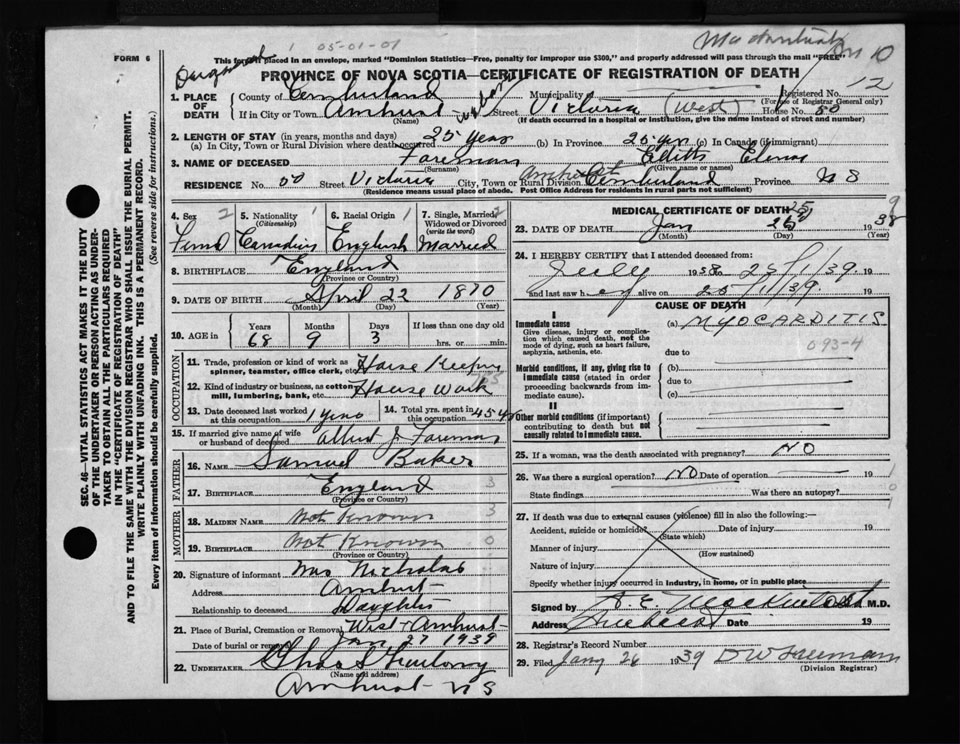 05-01-01
FORM 6
This form if placed in an envelope, marked "Dominion Statistics—Free, penalty for improper use $300," and properly addressed will pass through the mail "FREE"
10
PROVINCE OF NOVA SCOTIA—CERTIFICATE OF REGISTRATION OF DEATH
12
1. PLACE OF DEATH
County of Cumberland Municipality Registered No.
(For use of Registrar General only)
If in City or Town Amherst Street Victoria (West) House No. 50
(Name) (If death occurred in a hospital or institution, give the name instead of street and number)
2. LENGTH OF STAY (in years, months and days)
(a) In City, Town or Rural Division where death occurred 25 years (b) In Province 25 yrs (c) In Canada (if immigrant)
3. NAME OF DECEASED Foreman Edith
(Surname) (Given name or names)
RESIDENCE No. 50 Street Victoria City, Town or Rural Division Amherst Cumberland Province N S
(Residence means usual place of abode. Post Office Address for residents in rural parts not sufficient)
4. Sex 5. Nationality (Citizenship) 6. Racial Origin 7. Single, Married, Widowed or Divorced (write the word)
Fem Canadian English Married
8. BIRTHPLACE England
(Province or Country)
9. DATE OF BIRTH April 22 1870
(Month) (Day) (Year)
10. AGE in Years Months Days If less than one day old
68 9 3 hrs. or min.
OCCUPATION
11. Trade, profession or kind of work as spinner, teamster, office clerk, etc. House Keeping
12. Kind of industry or business, as cotton mill, lumbering, bank, etc. House Work
13. Date deceased last worked at this occupation 14. Total yrs. spent in this occupation 45
15. If married give name of wife or husband of deceased Albert J. Foreman
FATHER
16. NAME Samuel Baker
17. BIRTHPLACE England
(Province or Country)
MOTHER
18. MAIDEN NAME Not Known
19. BIRTHPLACE Not Known
(Province or Country)
20. Signature of informant Mrs Nicholas
Address Amherst
Relationship to deceased Daughter
21. Place of Burial, Cremation or Removal West Amherst
Date of burial or removal Jan 27 1939
22. UNDERTAKER Chas S
(Name and address)
Amherst N S
MEDICAL CERTIFICATE OF DEATH
23. DATE OF DEATH Jan 25 19
(Month) (Day) (Year)
24. I HEREBY CERTIFY that I attended deceased from:
July 1938 25/1/39. 19
and last saw h er alive on 25/1/39. 19
CAUSE OF DEATH
I
Immediate cause (a) MYOCARDITIS
Give disease, injury or complication which caused death, not the mode of dying, such as heart failure, asphyxia, asthenia, etc.
093-4
due to
Morbid conditions, if any, giving rise to immediate cause (stated in order proceeding backwards from immediate cause).
(b)
due to
(c)
II
Other morbid conditions (if important) contributing to death but not causally related to immediate cause.
25. If a woman, was the death associated with pregnancy? NO
26. Was there a surgical operation? NO Date of operation 19
State findings Was there an autopsy?
27. If death was due to external causes (violence) fill in also the following:—
Accident, suicide or homicide? Date of injury 19
(State which)
Manner of injury
(How sustained)
Nature of injury
Specify whether injury occurred in industry, in home, or in public place
Signed by A. E. Mackintosh M.D.
Address Amherst Date 19
28. Registrar's Record Number
29. Filed Jany 26 1939
(Division Registrar)
SEC. 46—VITAL STATISTICS ACT MAKES IT THE DUTY
OF THE UNDERTAKER OR PERSON ACTING AS UNDER-
TAKER TO OBTAIN ALL THE PARTICULARS REQUIRED
IN THE "CERTIFICATE OF REGISTRATION OF DEATH"
AND TO FILE THE SAME WITH THE DIVISION REGISTRAR WHO SHALL ISSUE THE BURIAL PERMIT.
WRITE PLAINLY WITH UNFADING INK. THIS IS A PERMANENT RECORD.
Every item of information should be carefully supplied. (See reverse side for instructions.)